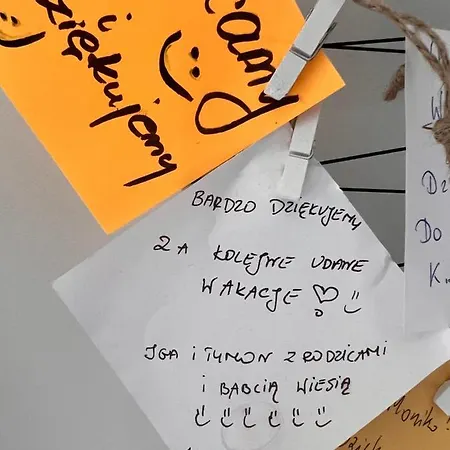 i
dziękujemy
BARDZO DZIĘKUJEMY
ZA KOLEJNE UDANE
WAKACJE
IGA I TYMON Z RODZICAMI
I BABCIĄ WIESIĄ
Do